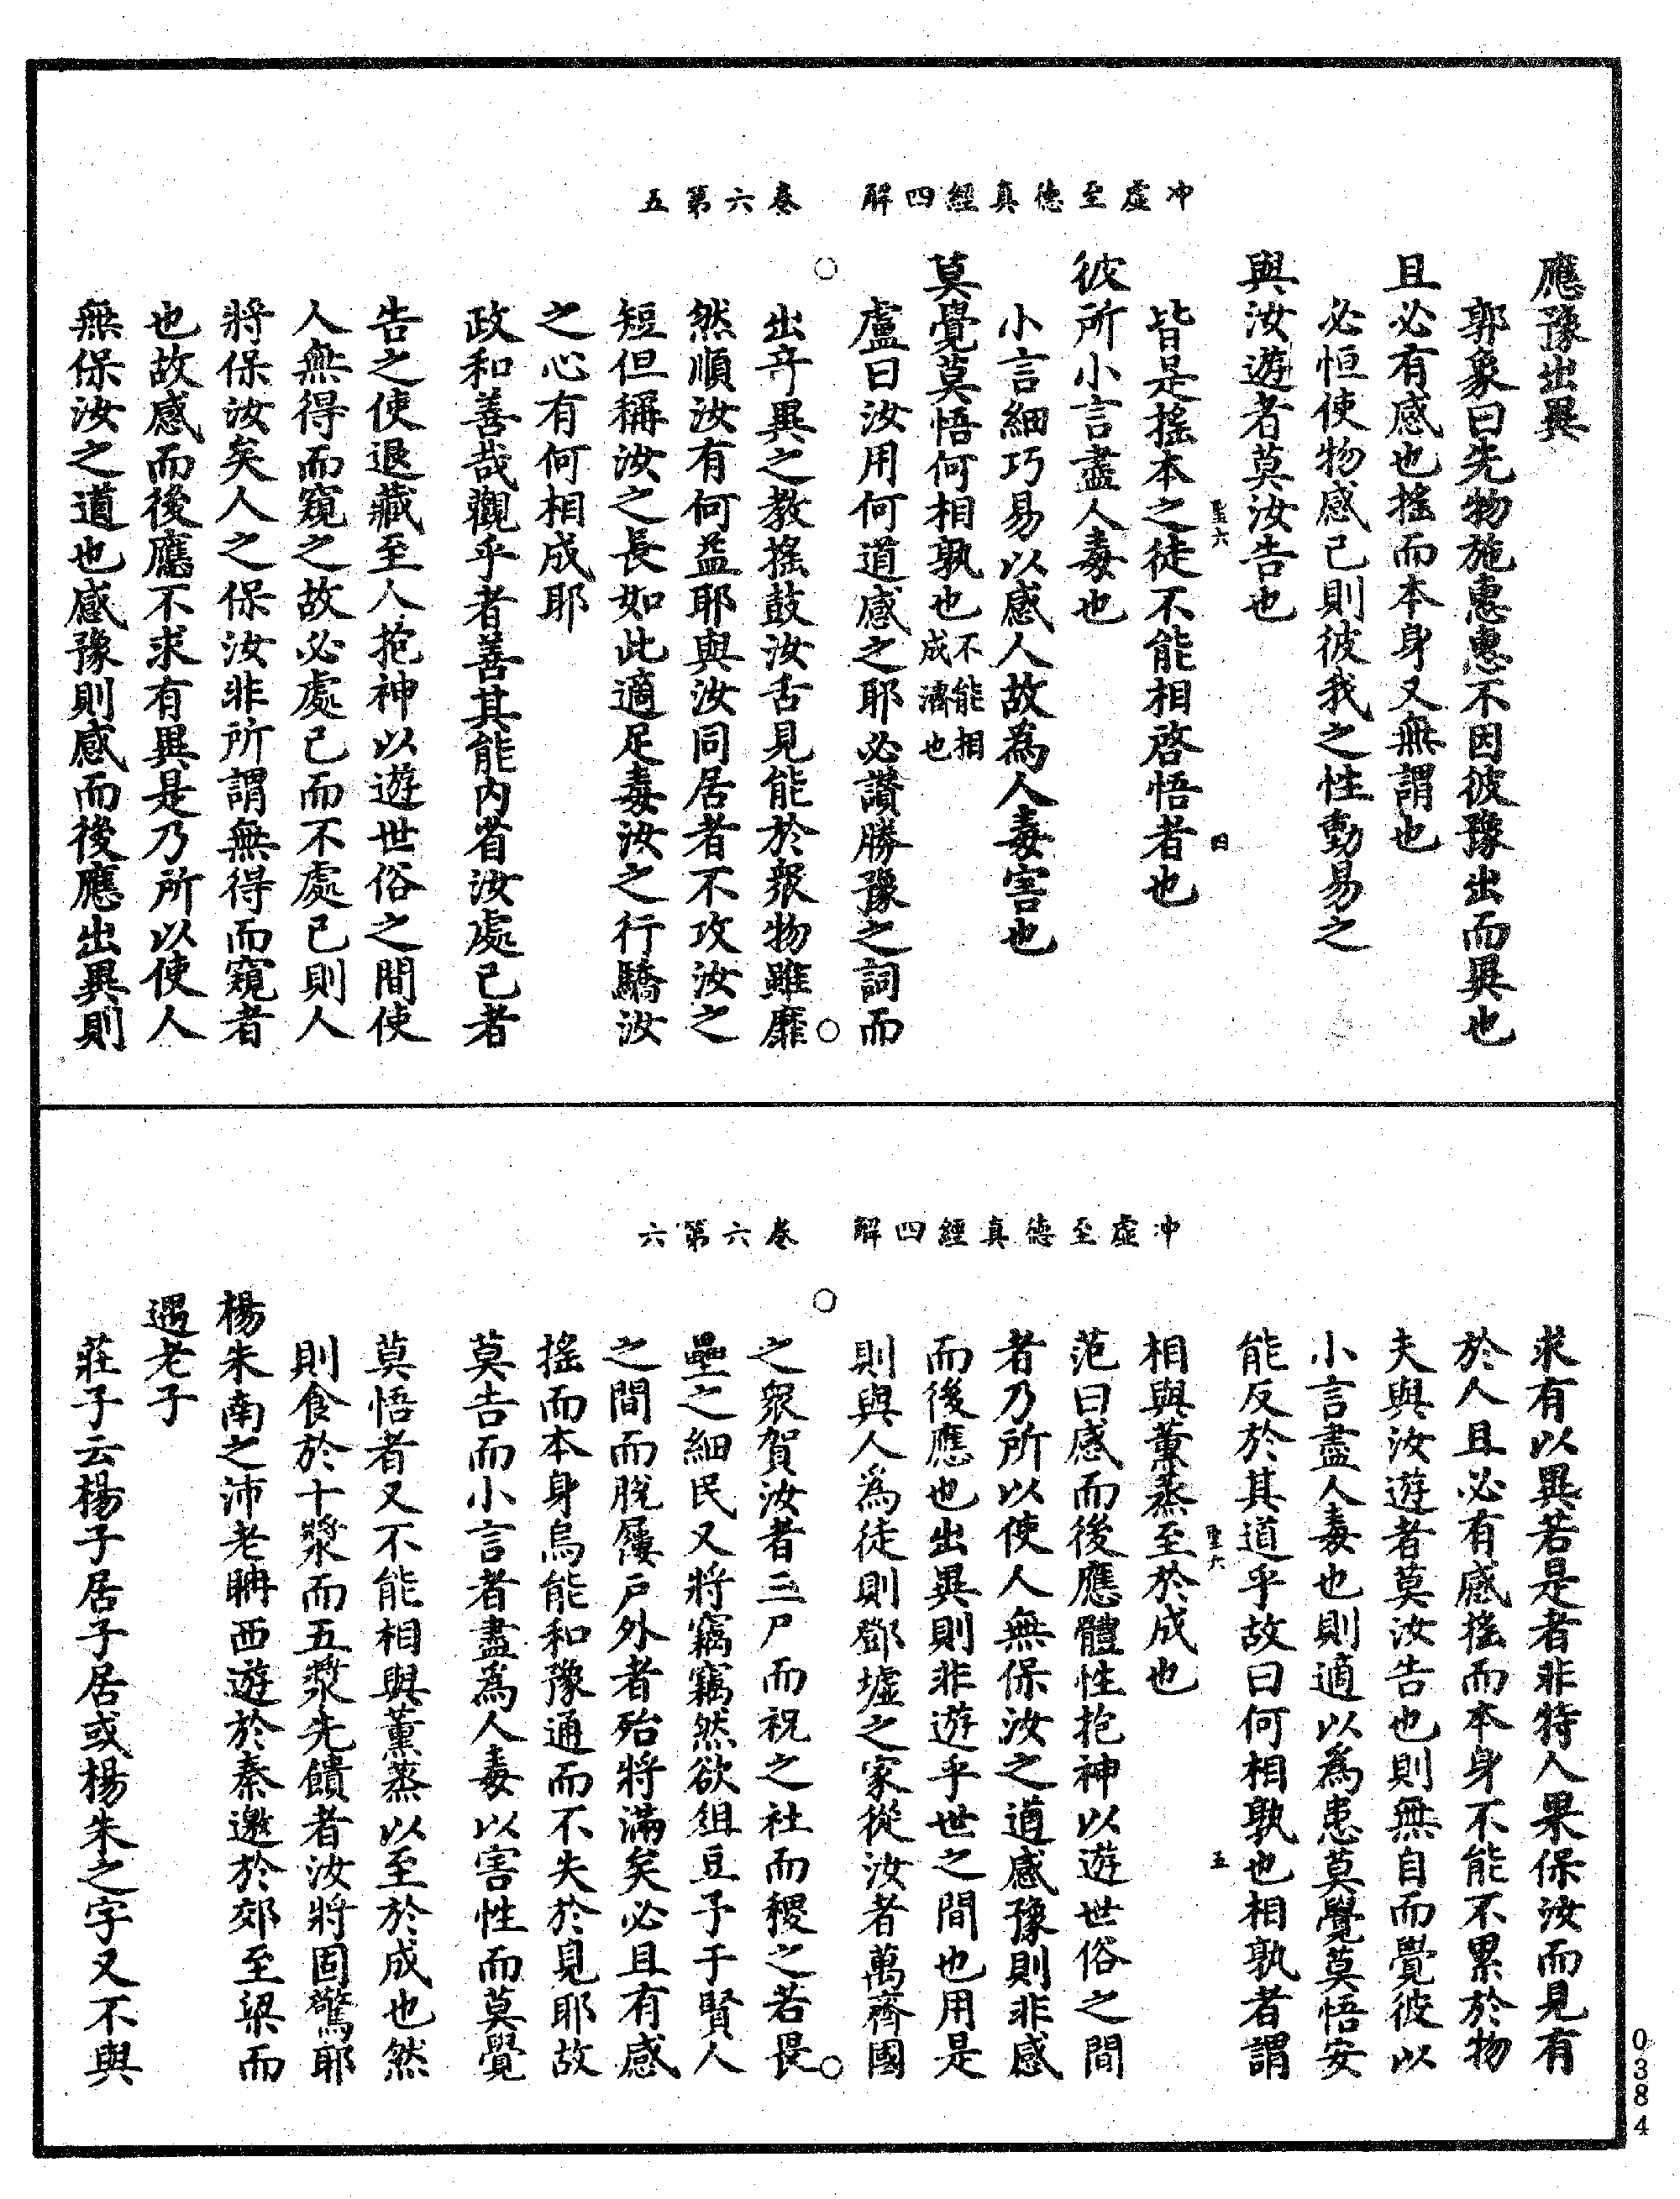 冲虛至德真經四解　卷六第五
應豫出異
郭象曰先物施惠惠不因彼豫出而異也
且必有感也搖而本身又無謂也
必恒使物感己則彼我之性動易之
與汝遊者莫汝告也
聖六　四
皆是搖本之徒不能相啓悟者也
彼所小言盡人毒也
小言細巧易以感人故為人毒害也
莫覺莫悟何相孰也不能相成濟也
盧曰汝用何道感之耶必讚勝豫之詞而
出奇異之教搖鼓汝舌見能於衆物雖靡
然順汝有何益耶與汝同居者不攻汝之
短但稱汝之長如此適足毒汝之行驕汝
之心有何相成耶
政和善哉觀乎者善其能内省汝處已者
告之使退藏至人抱神以遊世俗之間使
人無得而窺之故必處己而不處己則人
將保汝矣人之保汝非所謂無得而窺者
也故感而後應不求有異是乃所以使人
無保汝之道也感豫則感而後應出異則
冲虛至德真經四解　卷六第六
求有以異若是者非特人果保汝而見有
於人且必有感搖而本身不能不累於物
夫與汝遊者莫汝告也則無自而覺彼以
小言盡人毒也則適以為患莫覺莫悟安
能反於其道乎故曰何相孰也相孰者謂
聖六　五
相與薰蒸至於成也
范曰感而後應體性抱神以遊世俗之間
者乃所以使人無保汝之道感豫則非感
而後應也出異則非遊乎世之間也用是
則與人為徒則鄧墟之家從汝者萬齊國
之衆賀汝者三尸而祝之社而稷之若畏
壘之細民又將竊竊然欲俎豆予于賢人
之間而脫屨戶外者殆將滿矣必且有感
搖而本身烏能和豫通而不失於見耶故
莫告而小言者盡為人毒以害性而莫覺
莫悟者又不能相與薰蒸以至於成也然
則食於十漿而五漿先饋者汝將固驚耶
楊朱南之沛老聃西遊於秦邀於郊至梁而
遇老子
莊子云楊子居子居或楊朱之字又不與
0384